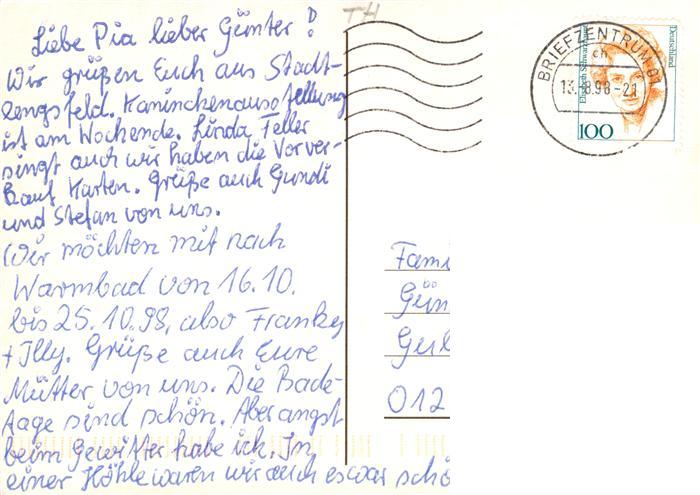 Liebe Pia lieber Günter!
TH
Wir grüßen Euch aus Stadt-
lengsfeld. Kaninchenausstellung
ist am Wochende. Linda Feller
singt auch wir haben die Vorver-
kauf Karten. Grüße auch Gundi
und Stefan von uns.
Wir möchten mit nach
Warmbad von 16.10.
bis 25.10.98, also Franky
+ Illy. Grüße auch Eure
Mütter von uns. Die Bade-
tage sind schön. Aber angst
beim Gewitter habe ich. In
einer Höhle waren wir auch es war schö
BRIEFZENTRUM 01
ch
13.-8.98-21
Deutschland
100
Fami
Gün
012